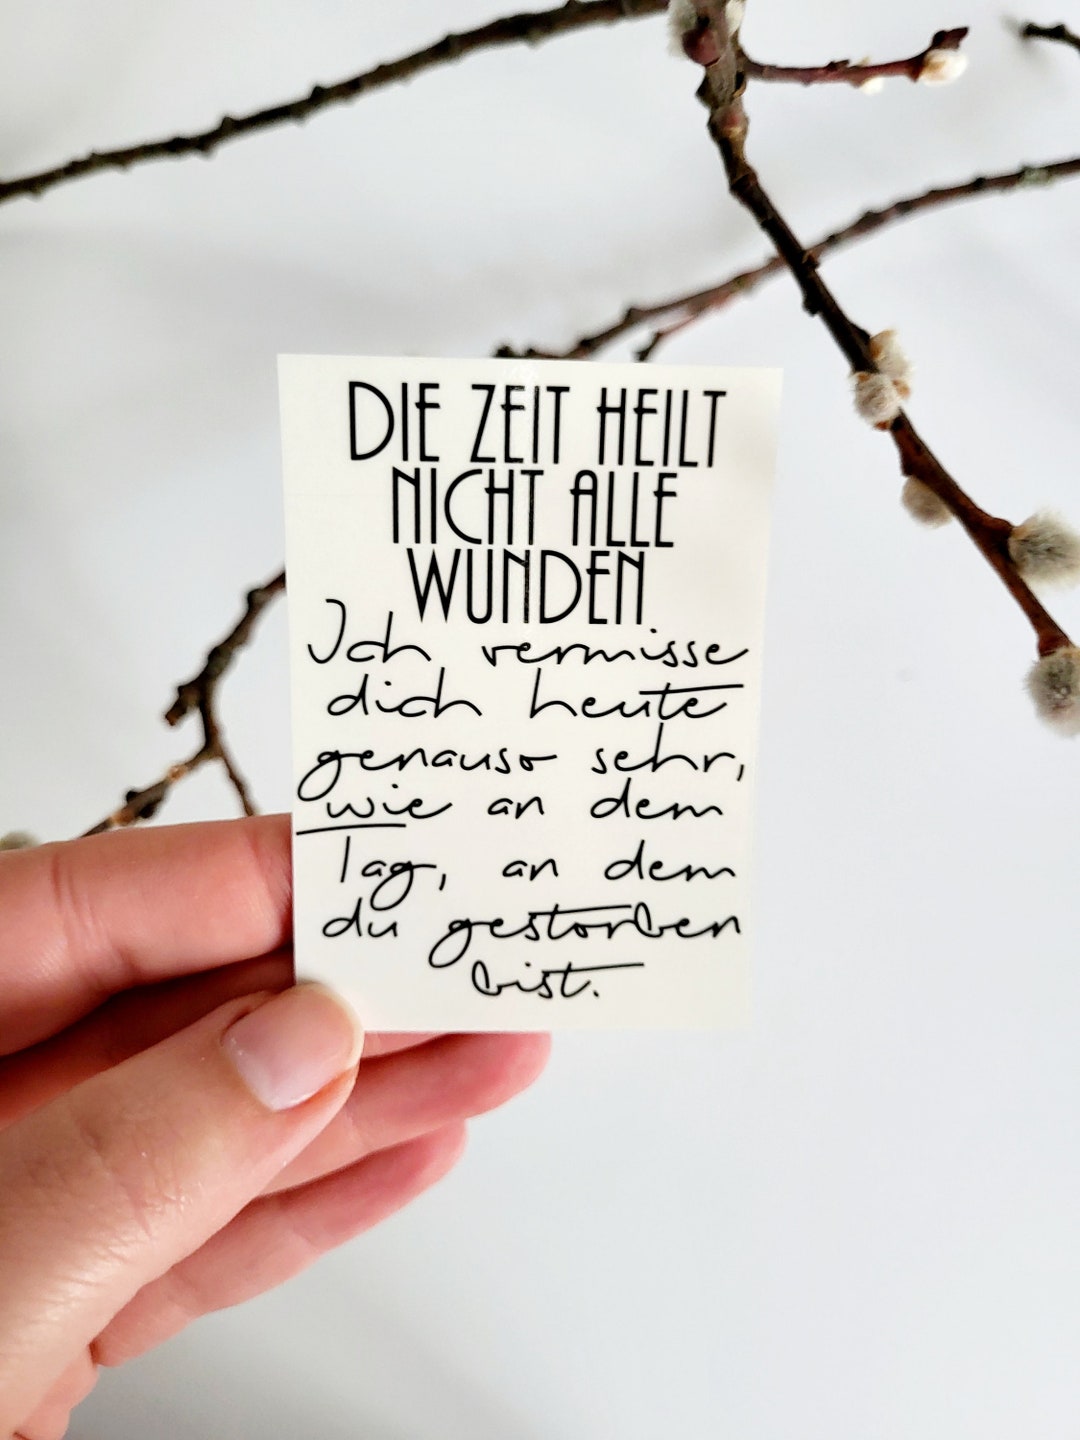 DIE ZEIT HEILT
NICHT ALLE
WUNDEN
Ich vermisse
dich heute
genauso sehr,
wie an dem
Tag, an dem
du gestorben
bist.